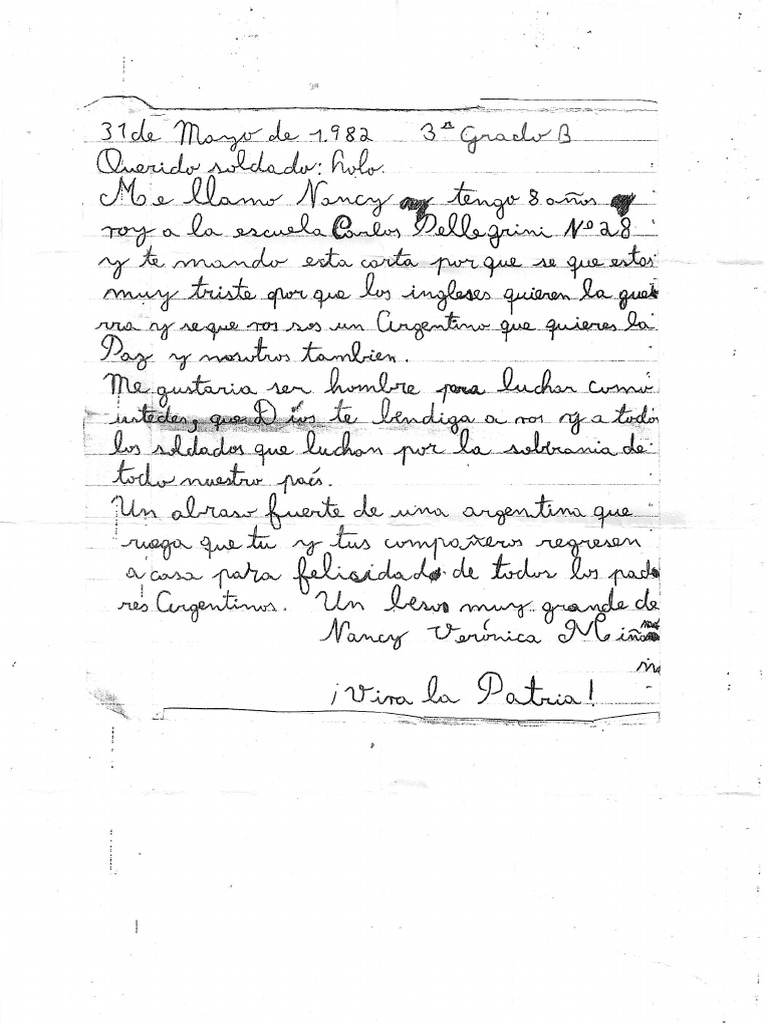 31 de Mayo de 1.982 3ª Grado B
Querido soldado: hola.
Me llamo Nancy y tengo 8 años y
voy a la escuela Carlos Pellegrini Nº 28
y te mando esta carta por que se que estas
muy triste por que los ingleses quieren la gue
rra y se que vos sos un Argentino que quieres la
Paz y nosotros tambien.
Me gustaria ser hombre para luchar como
ustedes, que Dios te bendiga a vos y a todos
los soldados que luchan por la sobrania de
todo nuestro país.
Un abraso fuerte de una argentina que
ruega que tu y tus compañeros regresen
a casa para felicidad de todos los pad
res Argentinos. Un beso muy grande de
Nancy Verónica
¡Viva la Patria!